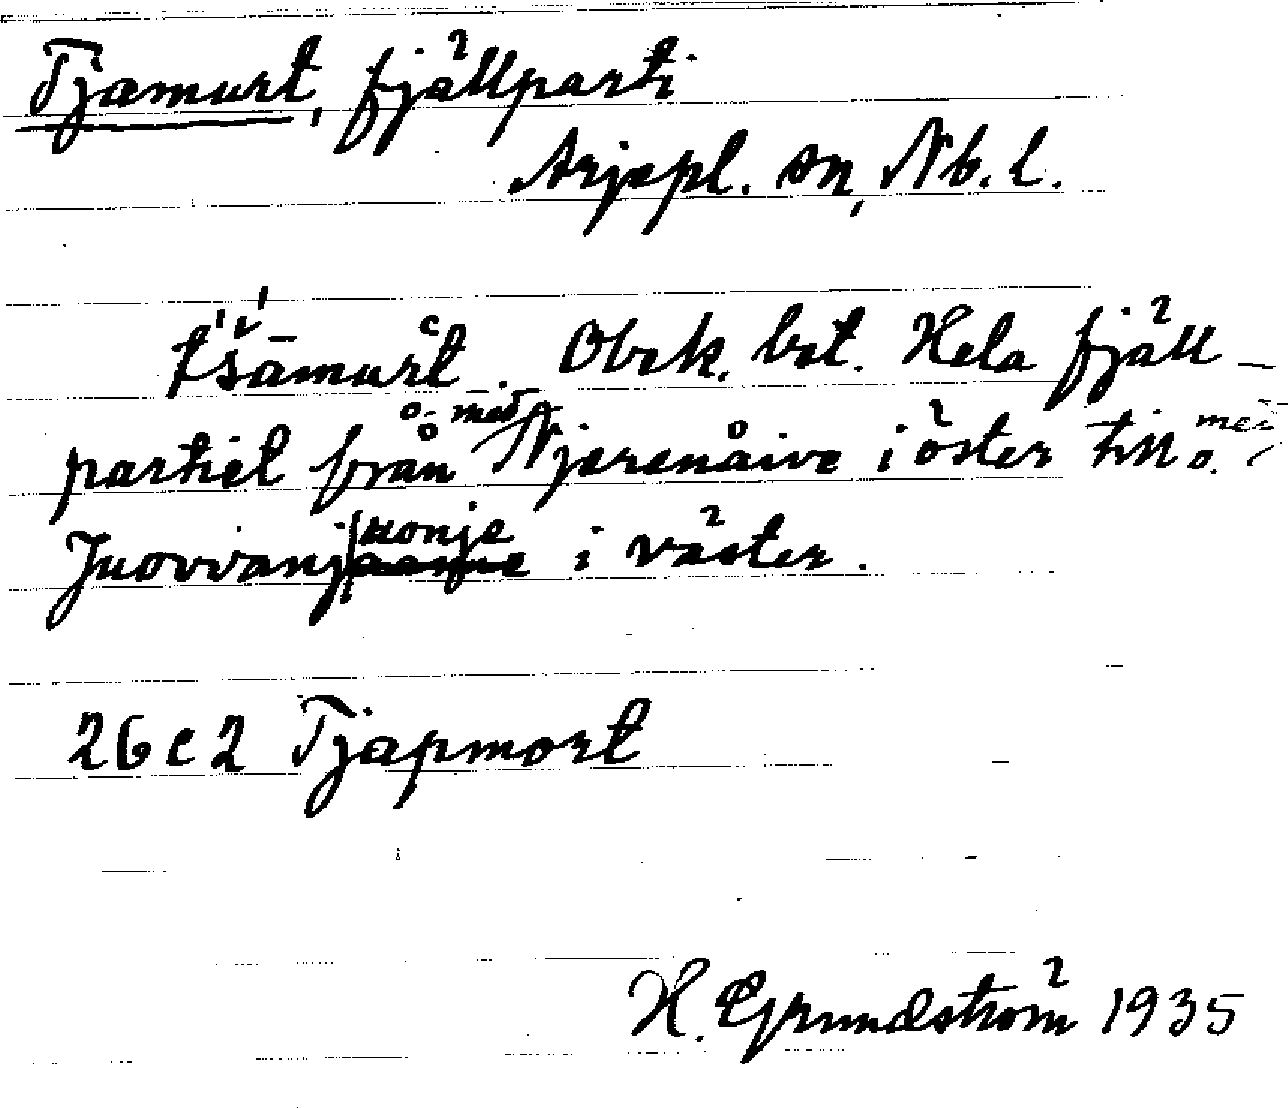 Tjamurt, fjällparti
Arjepl. sn, Nb. l.
Obek. bet. Hela fjäll-
partiet från o. med Njerenåive i öster till o. med
Juovvanj|uonje i väster.
26c2 Tjapmort
H. Grundström 1935